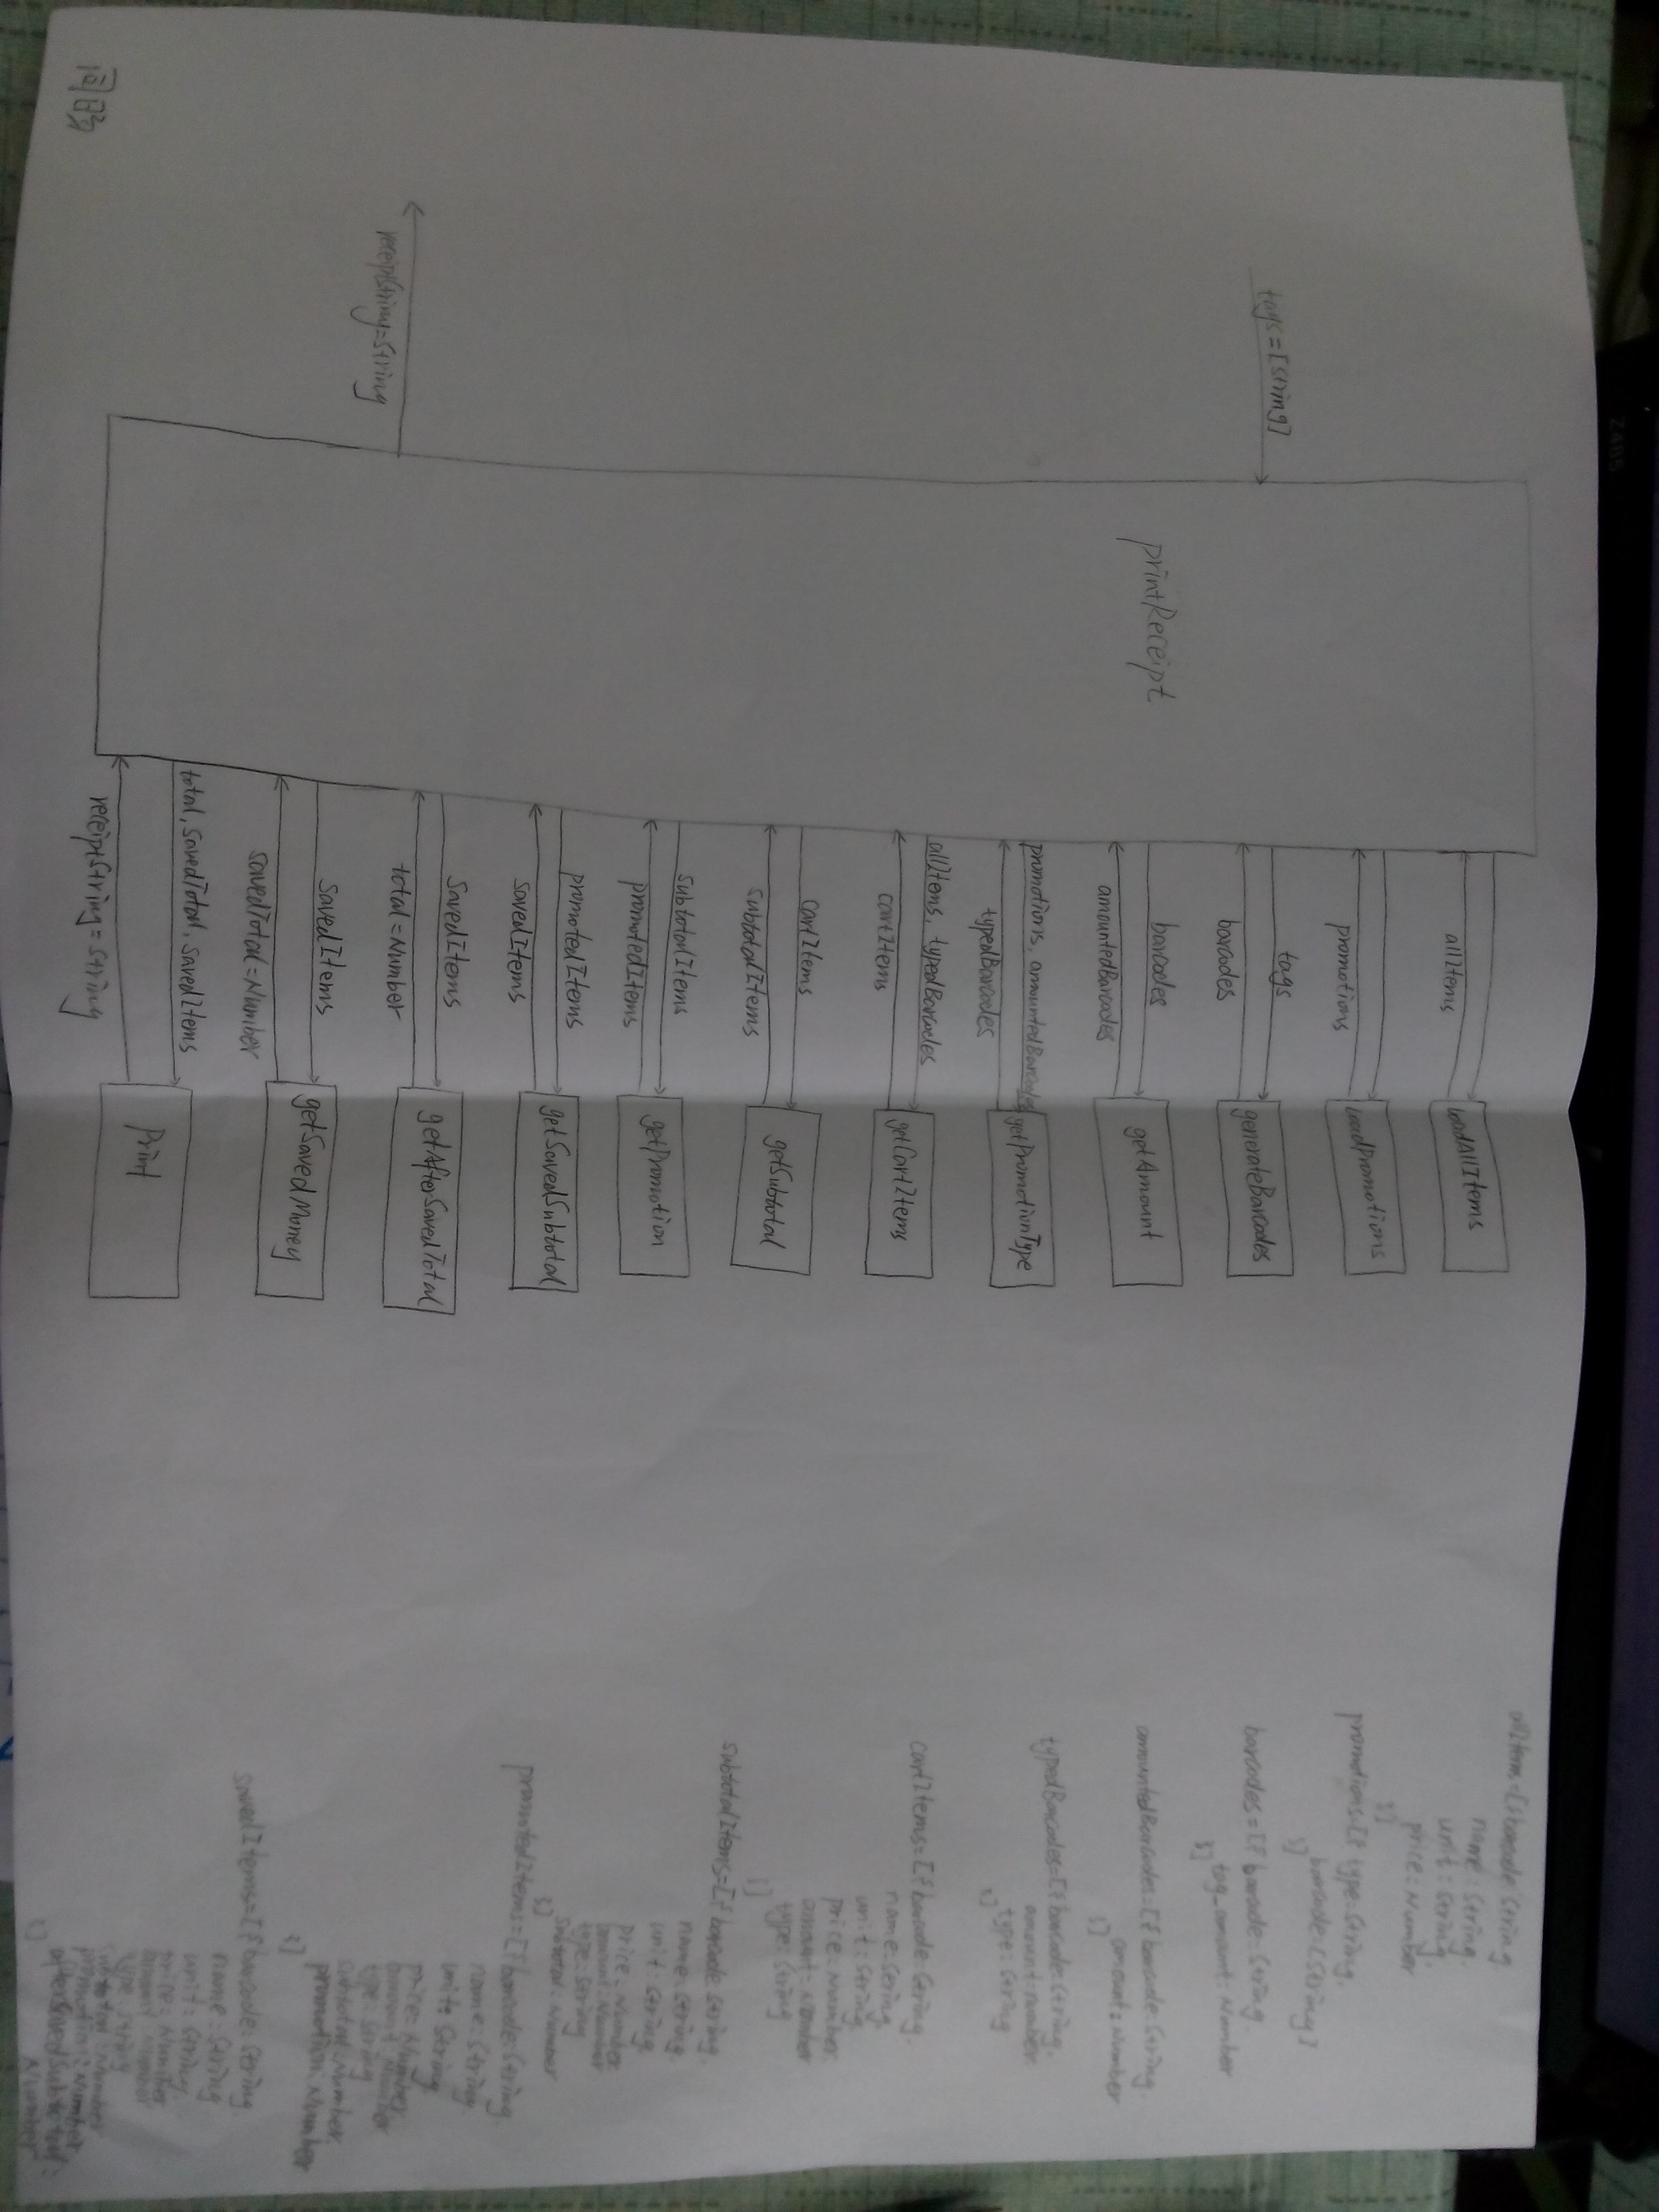 tags=[string]
receiptString=string
printReceipt
allItems
loadAllItems
promotions
loadPromotions
tags
barcodes
generateBarcodes
barcodes
amountedBarcodes
getAmount
promotions, amountedBarcodes
typedBarcodes
getPromotionType
allItems, typedBarcodes
cartItems
getCartItems
cartItems
subtotalItems
getSubtotal
subtotalItems
promotedItems
getPromotion
promotedItems
savedItems
getSavedSubtotal
savedItems
total=Number
getAfterSavedTotal
savedItems
savedTotal=Number
getSavedMoney
total, savedTotal, savedItems
receiptString=string
Print
allItems=[{barcode:String
name:String.
unit:String.
price:Number
}]
promotions=[{type:String.
barcode:[String]
}]
barcodes=[{barcode:String.
tag_amount:Number
}]
amountedBarcodes=[{barcode:String.
amount:Number
}]
typedBarcodes=[{barcode:String.
amount:number.
type:String
}]
cartItems=[{barcode:String.
name:String.
unit:String.
price:Number.
amount:Number
type:String
}]
subtotalItems=[{barcode:String.
name:String.
unit:String.
price:Number
amount:Number
type:String
subtotal:Number
}]
promotedItems=[{barcode:String.
name:String.
unit:String
price:Number.
amount:Number
type:String
subtotal:Number.
promotion:Number
}]
savedItems=[{barcode:String.
name:String
unit:String
price:Number
amount:Number
type:String
subtotal:Number
promotion:Number
afterSavedSubtotal:
Number
}]